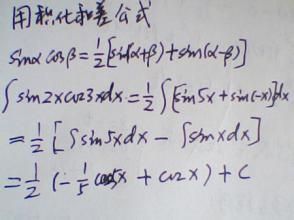 用积化和差公式
sinα cosβ = 1/2 [sin(α+β) + sin(α-β)]
∫ sin2x cos3x dx = 1/2 ∫ [sin5x + sin(-x)] dx
= 1/2 [∫ sin5x dx - ∫ sinx dx]
= 1/2 (-1/5 cos5x + cosx) + C